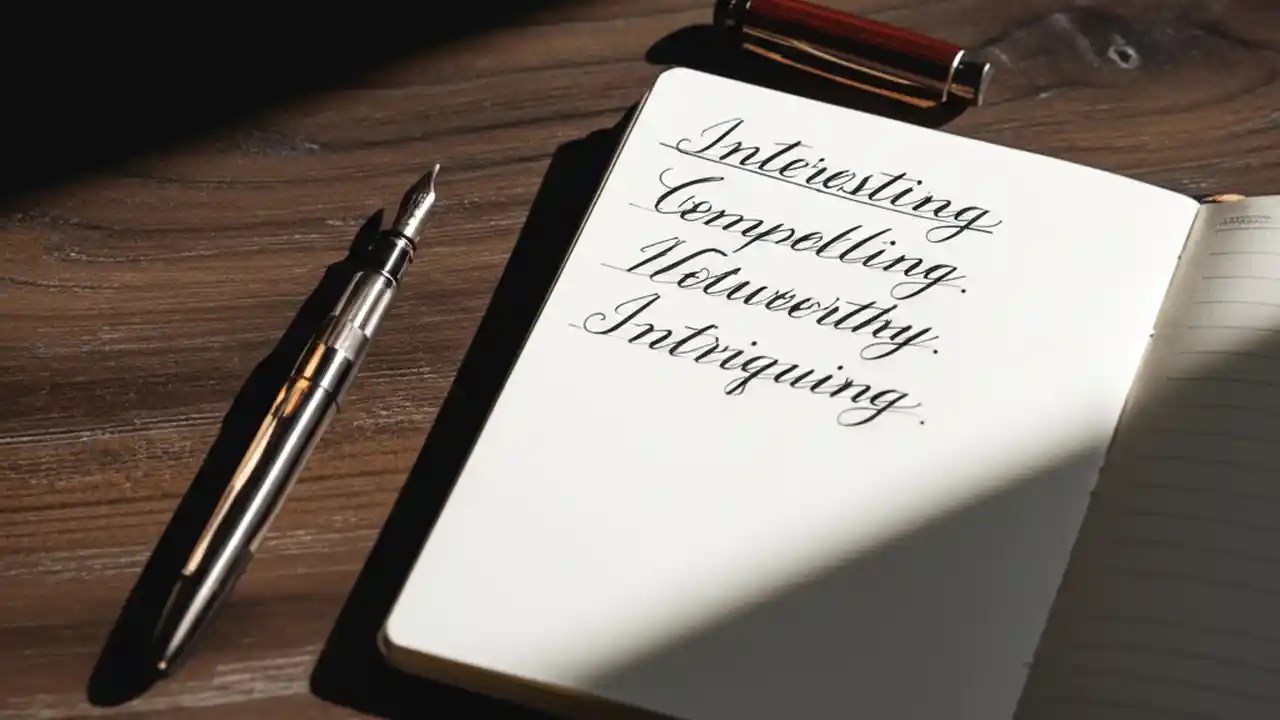 Interesting
Compelling.
Noteworthy.
Intriguing.